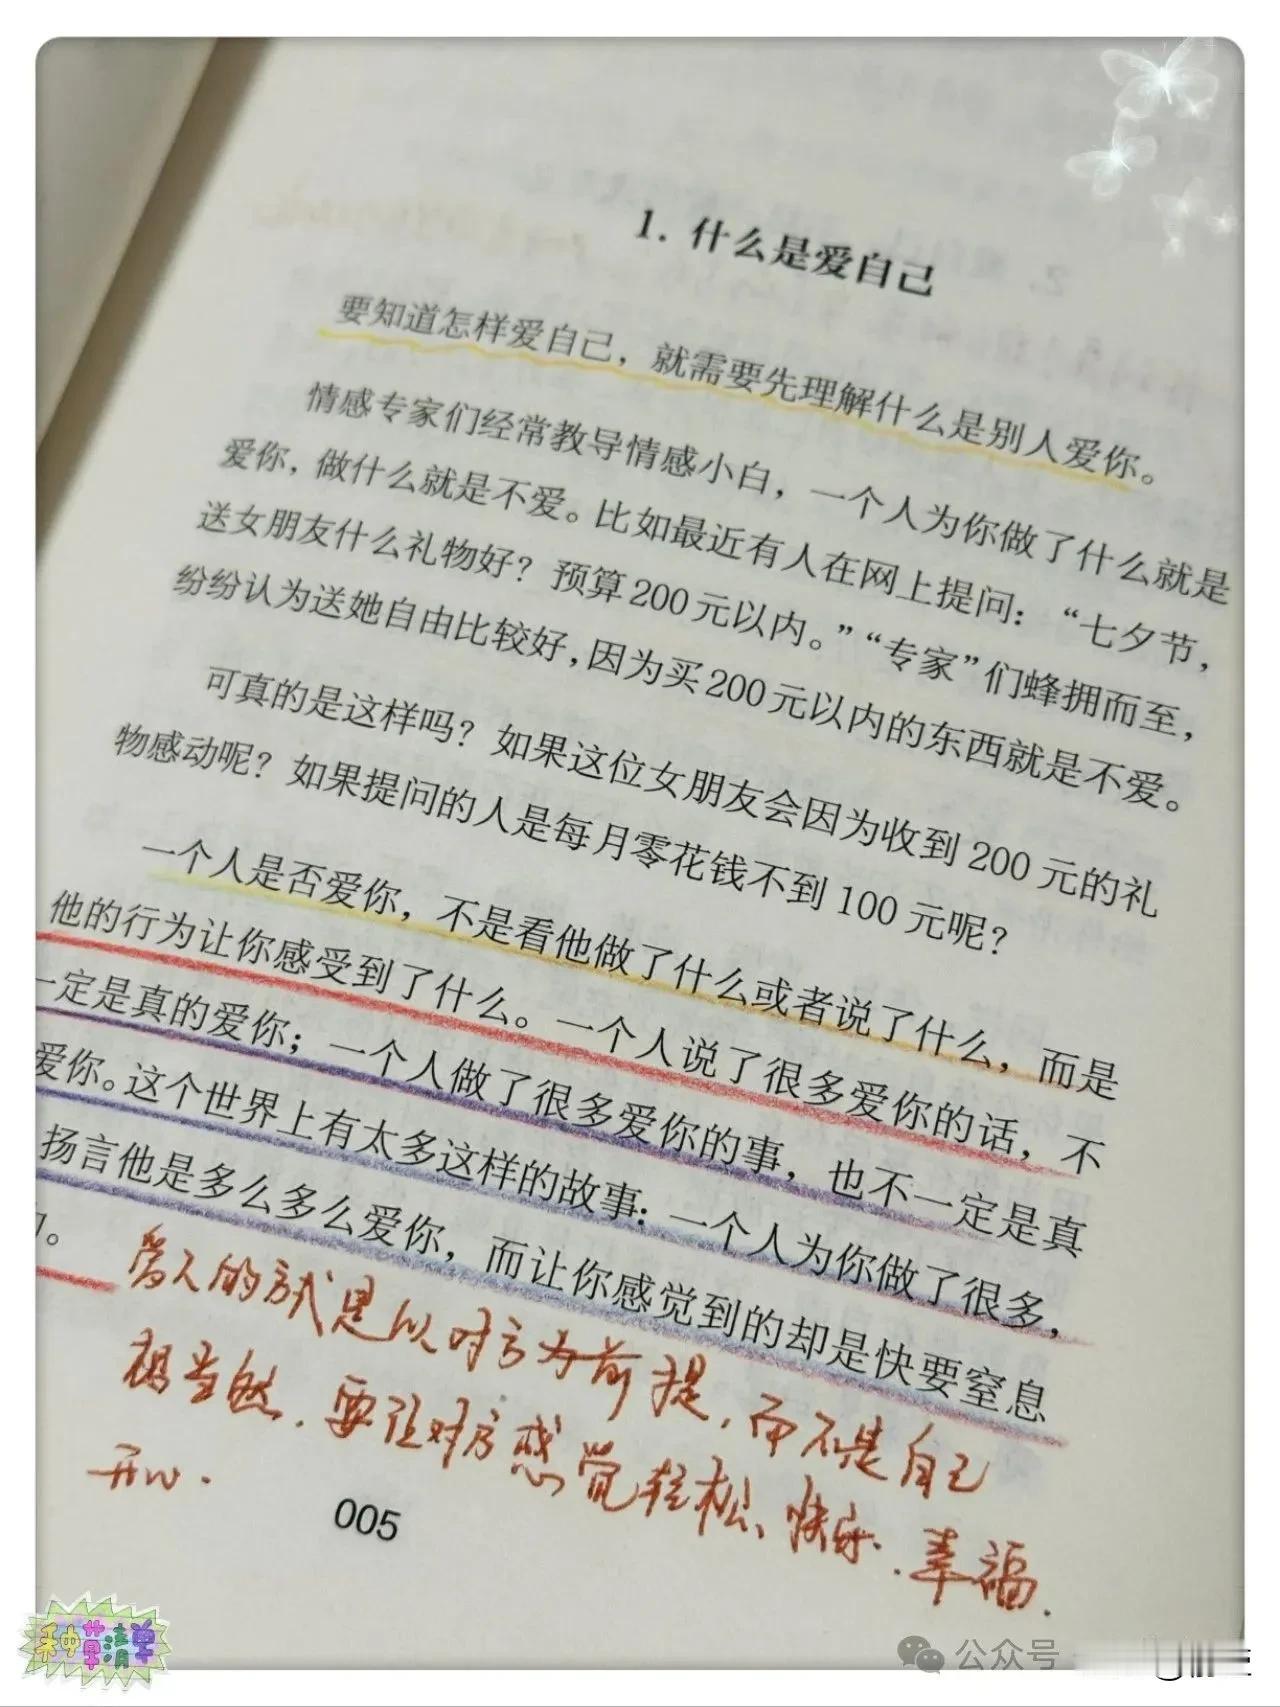 1. 什么是爱自己
要知道怎样爱自己，就需要先理解什么是别人爱你。
情感专家们经常教导情感小白，一个人为你做了什么就是
爱你，做什么就是不爱。比如最近有人在网上提问：“七夕节，
送女朋友什么礼物好？预算200元以内。”“专家”们蜂拥而至，
纷纷认为送她自由比较好，因为买200元以内的东西就是不爱。
可真的是这样吗？如果这位女朋友会因为收到200元的礼
物感动呢？如果提问的人是每月零花钱不到100元呢？
一个人是否爱你，不是看他做了什么或者说了什么，而是
他的行为让你感受到了什么。一个人说了很多爱你的话，不
一定是真的爱你；一个人做了很多爱你的事，也不一定是真
爱你。这个世界上有太多这样的故事：一个人为你做了很多，
扬言他是多么多么爱你，而让你感觉到的却是快要窒息
。
爱人的方式是以对方为前提，而不是自己
想当然．要让对方感觉轻松、快乐．幸福．
开心．
005
种草清单
公众号